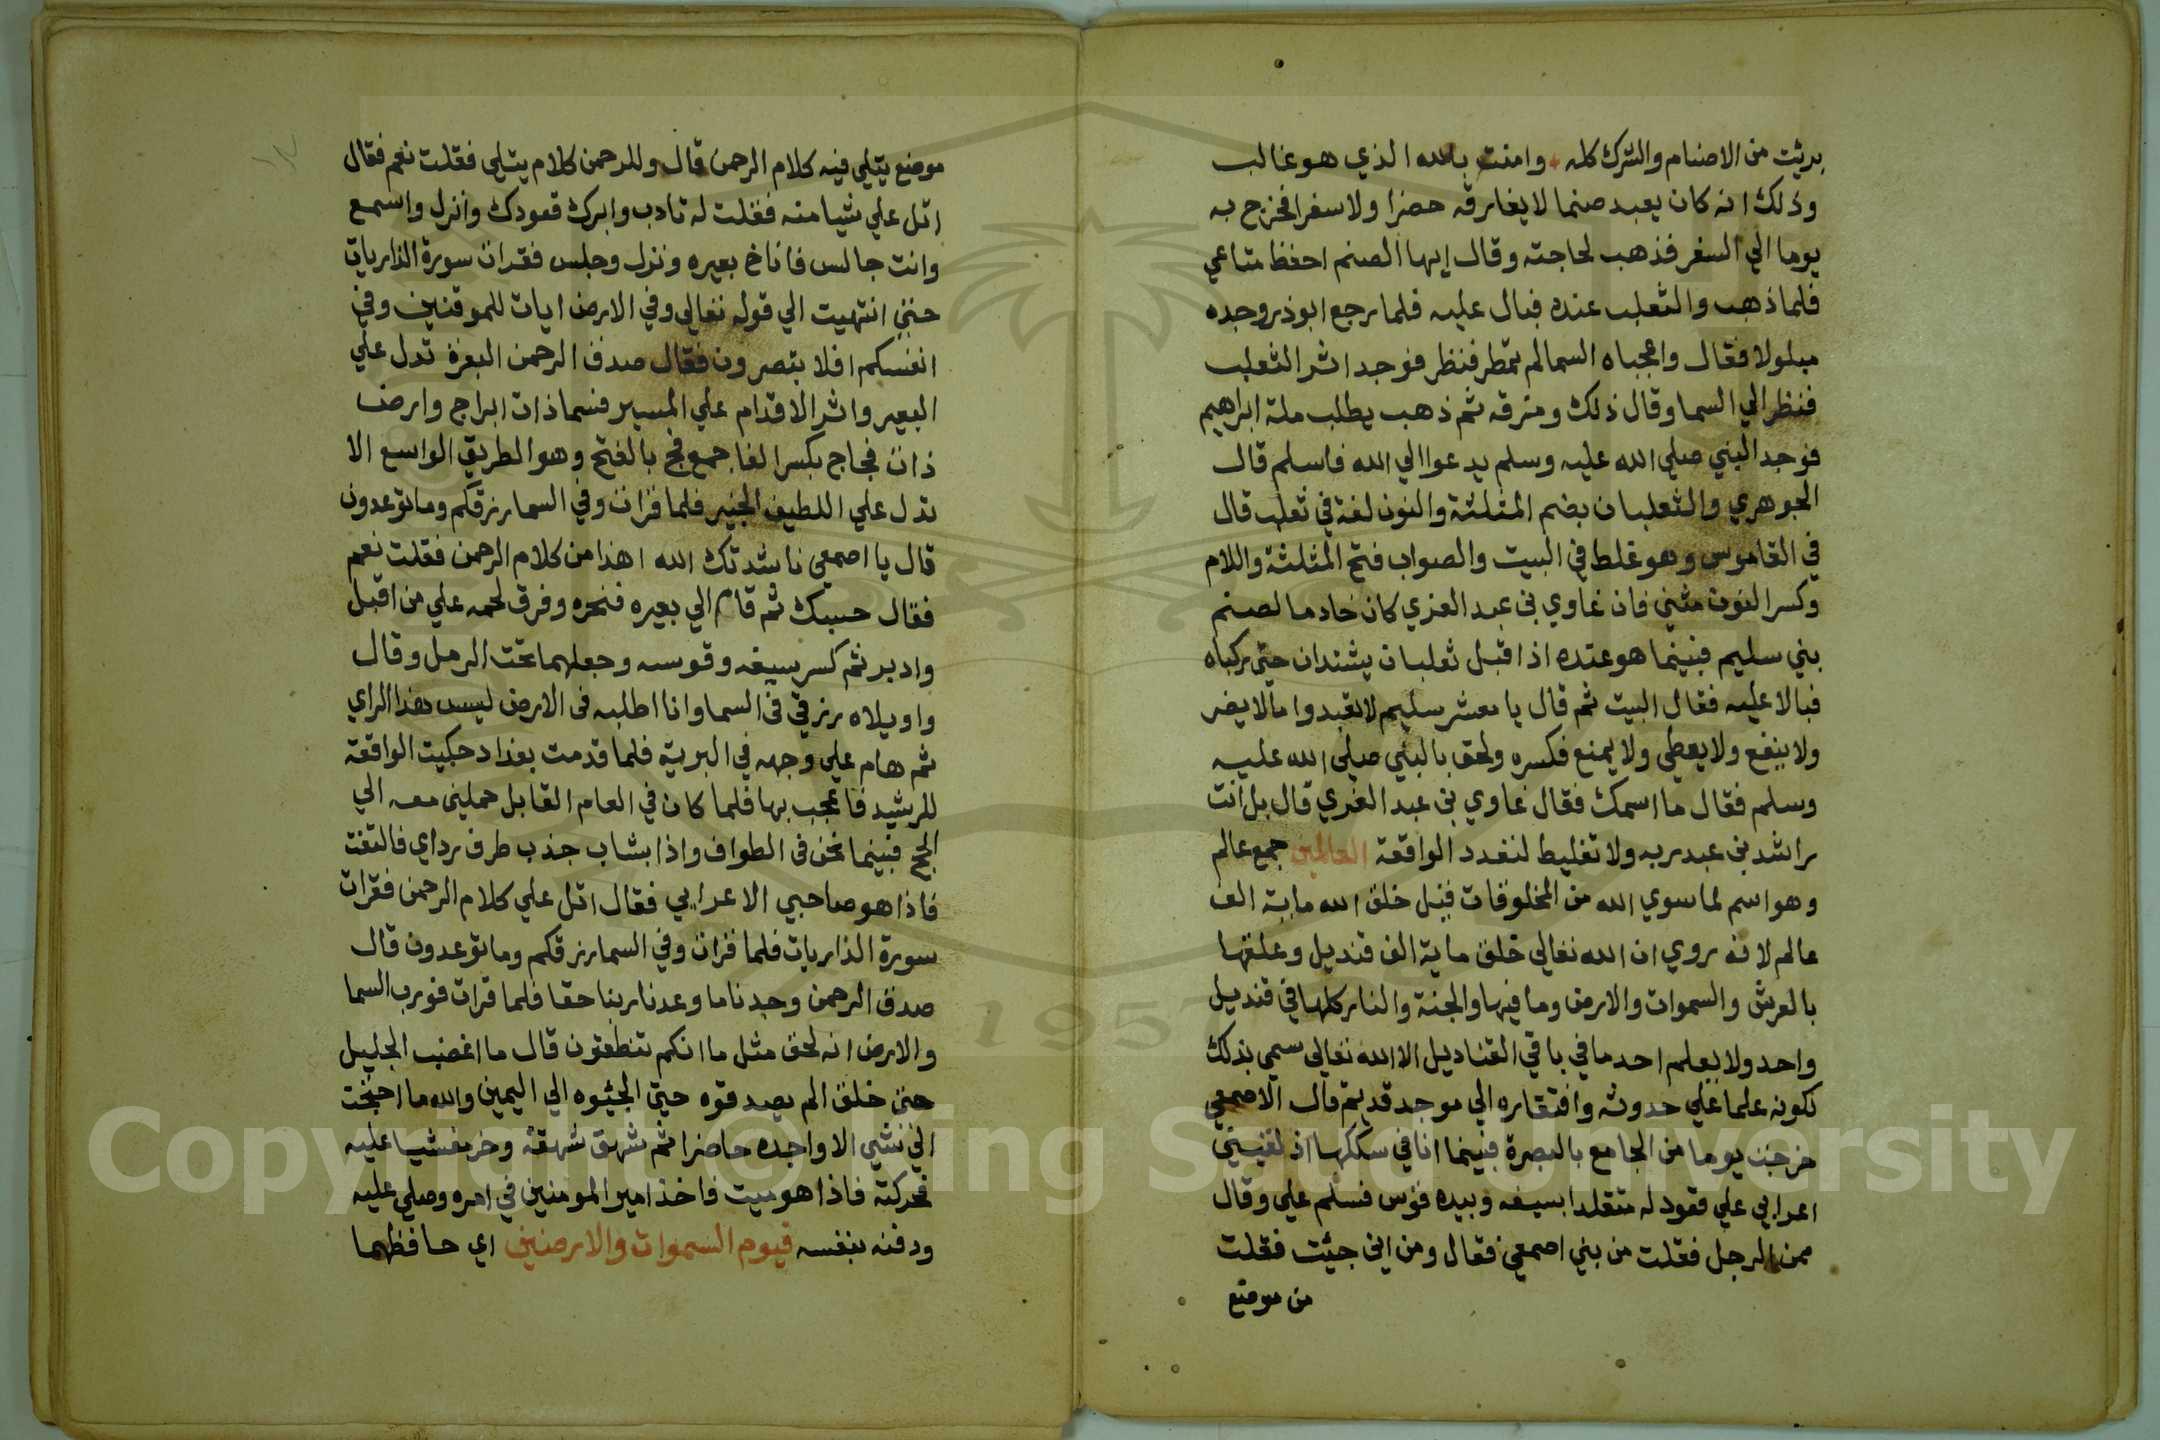 بريئت من الاصنام والشرك كله وامنت بالله الذي هو غالب
وذلك انه كان يعبد صنما لا يفارقه حضرا ولا سفرا فخرج به
يوما الي السفر فذهب لحاجته وقال ايها الصنم احفظ متاعي
فلما ذهب والثعلب عنده فبال عليه فلما رجع ابوذر وجده
مبلولا فقال واعجباه السما لم تمطر فنظر فوجد اثر الثعلب
فنظر الي السما وقال ذلك ومزقه ثم ذهب يطلب ملة ابراهيم
فوجد النبي صلي الله عليه وسلم يدعوا الي الله فاسلم قال
الجوهري والثعلبان بضم المثلثة والنون لغة في ثعلب قال
في القاموس وهو غلط في البيت والصواب فتح المثلثة واللام
وكسر النون مثني فان غاوي بن عبد العزي كان خادما لصنم
بني سليم فبينما هو عنده اذ اقبل ثعلبان يشتدان حتي ركباه
فبالا عليه فقال البيت ثم قال يا معشر سليم لا تعبدوا ما لا يضر
ولا ينفع ولا يعطي ولا يمنع فكسره ولحق بالنبي صلي الله عليه
وسلم فقال ما اسمك فقال غاوي بن عبد العزي قال بل انت
راشد بن عبد ربه ولا تغليط لتعدد الواقعة العالمين جمع عالم
وهو اسم لما سوي الله من المخلوقات قبل خلق الله ماية الف
عالم لانه روي ان الله تعالي خلق ماية الف قنديل وعلقها
بالعرش والسموات والارض وما فيها والجنة والنار كلها في قنديل
واحد ولا يعلم احد ما في باقي القناديل الا الله تعالي سمي بذلك
لكونه علما علي حدوثه وافتقاره الي موجد قديم قال الاصمعي
خرجت يوما من الجامع بالبصرة فبينما انا في سككها اذ لقيني
اعرابي علي قعود له متقلدا بسيفه وبيده قوس فسلم علي وقال
ممن الرجل فقلت من بني اصمعي فقال ومن اين جيئت فقلت
من موضع
موضع يتلي فيه كلام الرحمن قال وللرحمن كلام يتلي فقلت نعم فقال
اتل علي شيا منه فقلت له تادب وابرك قعودك وانزل واسمع
وانت جالس فاناخ بعيره ونزل وجلس فقرات سورة الذاريات
حتي انتهيت الي قوله تعالي وفي الارض ايات للموقنين وفي
انفسكم افلا تبصرون فقال صدق الرحمن البعرة تدل علي
البعير واثر الاقدام علي المسير فسما ذات ابراج وارض
ذات فجاج بكسر الفا جمع فج بالفتح وهو الطريق الواسع الا
تدل علي اللطيف الخبير فلما قرات وفي السما رزقكم وما توعدون
قال يا اصمعي ناشدتك الله اهذا من كلام الرحمن فقلت نعم
فقال حسبك ثم قام الي بعيره فنحره وفرق لحمه علي من اقبل
وادبر ثم كسر سيفه وقوسه وجعلهما تحت الرمل وقال
واويلاه رزقي في السما وانا اطلبه في الارض ليس هذا الراي
ثم هام علي وجهه في البرية فلما قدمت بغداد حكيت الواقعة
للرشيد فاعجب بها فلما كان في العام القابل حملني معه الي
الحج فبينما نحن في الطواف واذا بشاب جذب طرف رداي فالتفت
فاذا هو صاحبي الاعرابي فقال اتل علي كلام الرحمن فقرات
سورة الذاريات فلما قرات وفي السما رزقكم وما توعدون قال
صدق الرحمن وجدنا ما وعدنا ربنا حقا فلما قرات فورب السما
والارض انه لحق مثل ما انكم تنطقون قال ما اغضب الجليل
حتي خلق الم يصدقوه حتي الجئوه الي اليمين والله ما احتجت
الي شي الا واجده حاضرا ثم شهق شهقة وخر مغشيا عليه
فحركته فاذا هو ميت فاخذ امير المومنين في امره وصلي عليه
ودفنه بنفسه قيوم السموات والارضين اي حافظهما
Copyright © King Saud University
1957